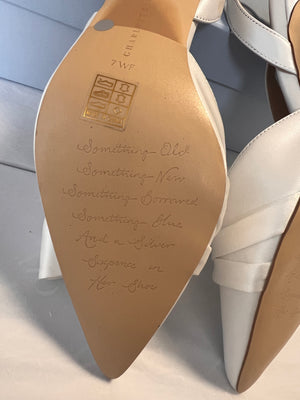 CHARLOTTE
7WF
Something Old
Something New
Something Borrowed
Something Blue
And a Silver
Sixpence in
Her Shoe